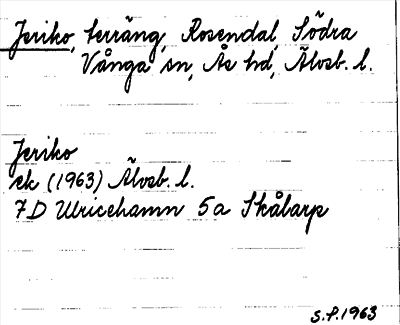 Jeriko, terräng, Rosendal, Södra
Vånga sn, Ås hd, Älvsb. l.
Jeriko
ek (1963) Älvsb. l.
7D Ulricehamn 5a Skålarp
S.P. 1963